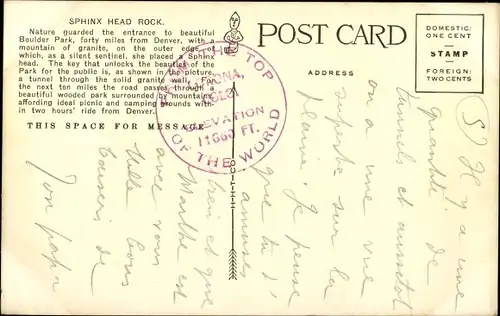 SPHINX HEAD ROCK.
Nature guarded the entrance to beautiful
Boulder Park, forty miles from Denver, with a
mountain of granite, on the outer edge of
which, as a silent sentinel, she placed a Sphinx
head. The key that unlocks the beauties of the
Park for the public is, as shown in the picture,
a tunnel through the solid granite wall. For
the next ten miles the road passes through a
beautiful wooded park surrounded by mountains,
affording ideal picnic and camping grounds with-
in two hours' ride from Denver.
THIS SPACE FOR MESSAGE
THE TOP
COLO.
ELEVATION
11660 FT.
OF THE WORLD
POST CARD
ADDRESS
DOMESTIC:
ONE CENT
STAMP
FOREIGN:
TWO CENTS
5) Il y a une
quantité de
tunnels et aussitot
on a une vue
superbe sur la
plaine. Je pense
que tu t'
amuses
bien et que
Marthe est
avec vous
Mille bons
baisers de
Ton papa